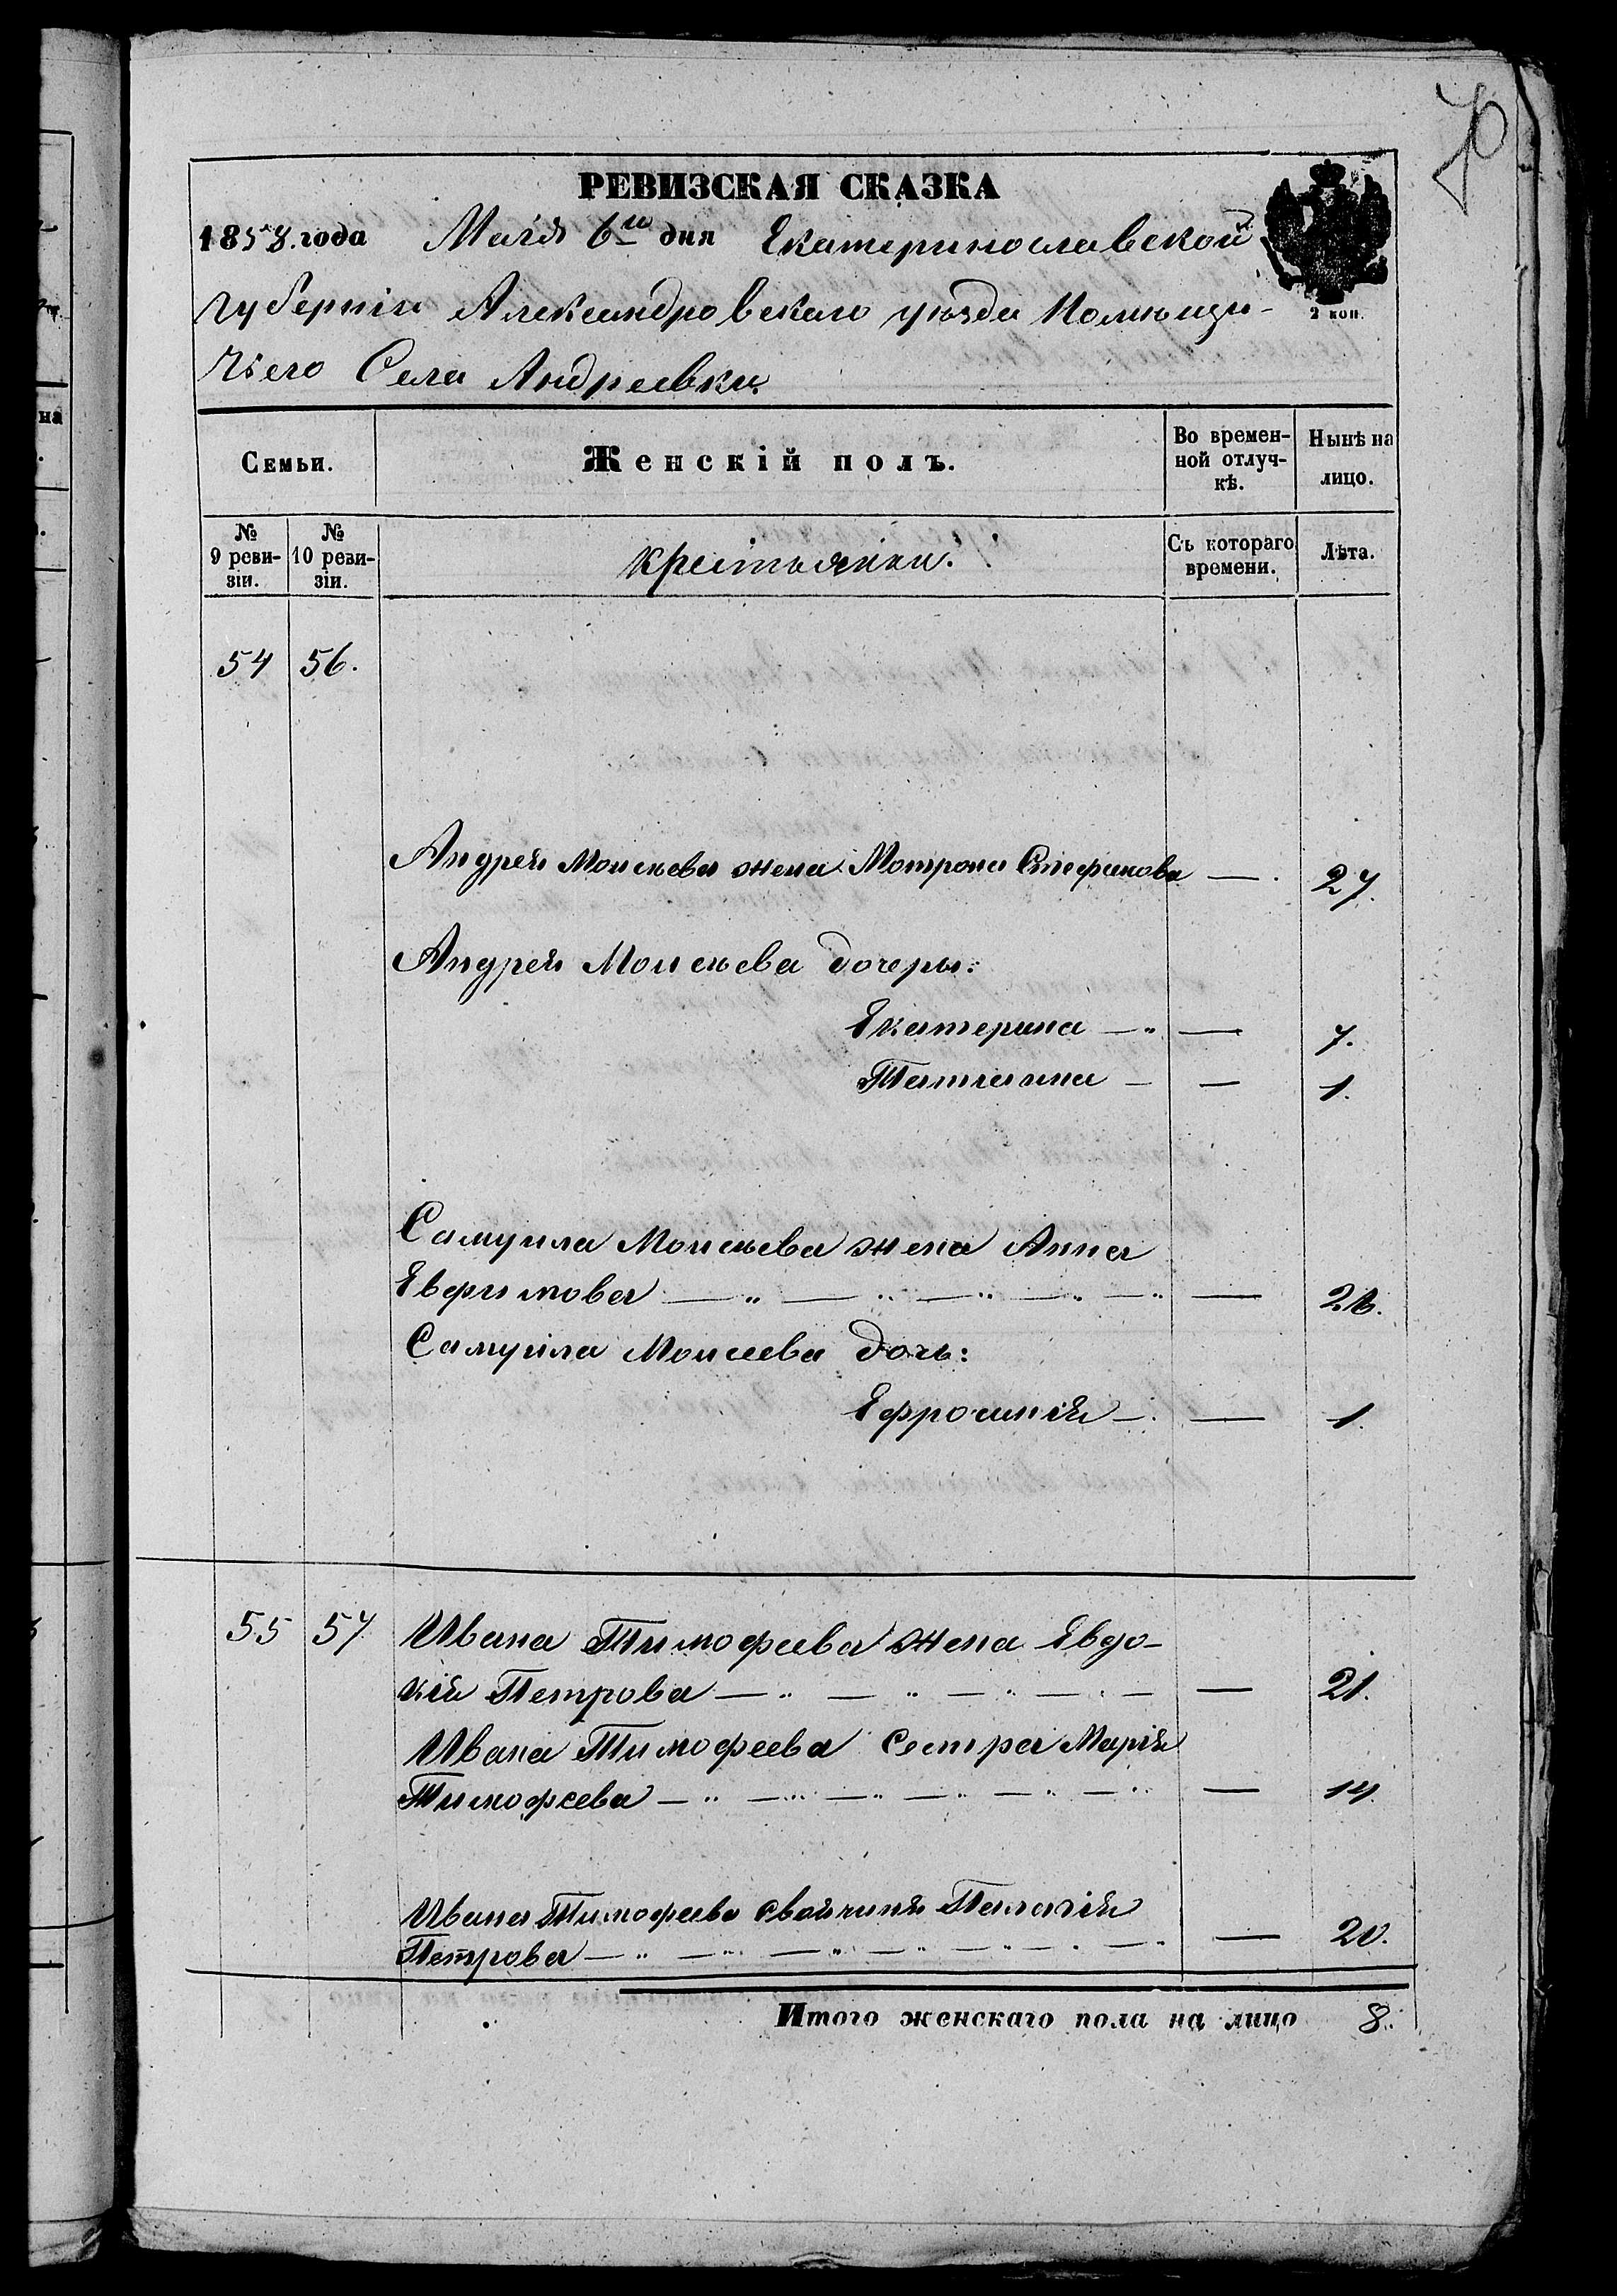 70
РЕВИЗСКАЯ СКАЗКА
1858. года Маія 6го дня Екатеринославской
губерніи Александровскаго уѣзда Помѣщи-
чьего Села Андреевки.
2 коп.
Семьи. Женскій полъ. Во времен-ной отлуч-кѣ. Нынѣ на лицо.
№ 9 реви-зіи. № 10 реви-зіи. крестьянки. Съ котораго времени. Лѣта.
54 56.
Андрей Моисѣева жена Мотрона Стефанова — 27.
Андрей Моисѣева дочеры:
Екатерина — 7.
Татіана — 1.
Самуила Моисѣева жена Анна
Евфимова —
Самуила Моисеева дочь:
Ефросинія — 1.
55 57 Ивана Тимофеева жена Евдо-
кія Петрова — 21.
Ивана Тимофеева Сестра Марія
Тимофеева — 14.
Ивана Тимофеева Свойчиня Пелагія
Петрова — 20.
Итого женскаго пола на лицо 8.
на